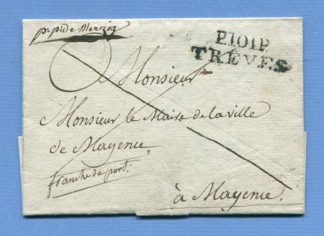 P.101.P.
TRÈVES
Monsieur
Monsieur le Maire de la ville
de Mayence
franche de port.
à Mayence.